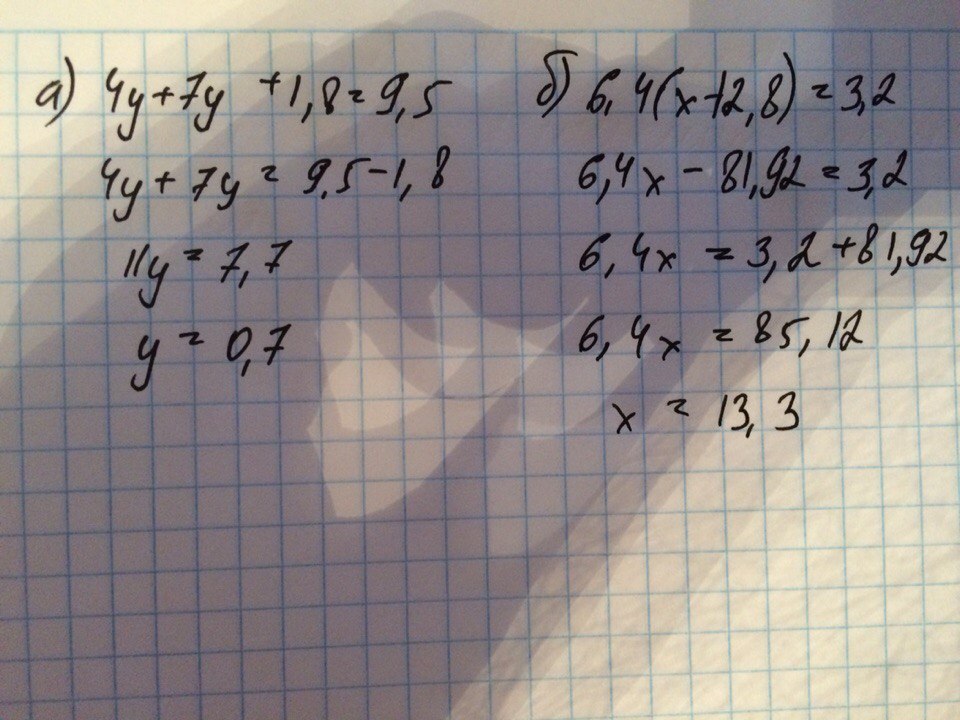 а) 4y+7y +1,8=9,5
4y+7y=9,5-1,8
11y=7,7
y=0,7
б) 6,4(x-12,8)=3,2
6,4x-81,92=3,2
6,4x=3,2+81,92
6,4x=85,12
x=13,3